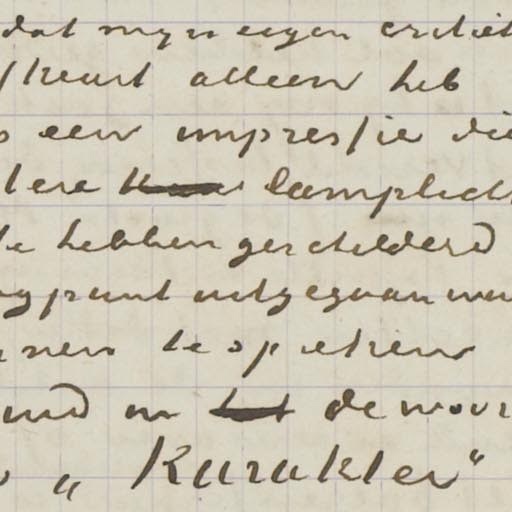 dat myn eigen critiek
alleen heb
een impressie die
lamplicht
te hebben geschilderd
punt uitgegaan
nen te spreken
in de
„Karakter"